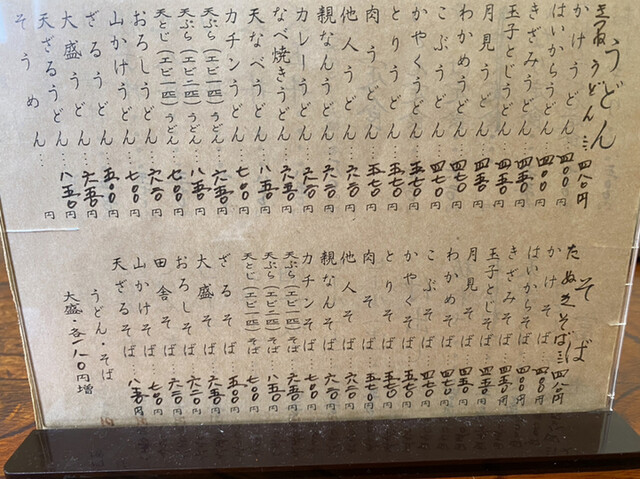 うどん
うどん…四八〇円
かけうどん…四〇〇円
はいからうどん…四〇〇円
きざみうどん…四五〇円
玉子とじうどん…四五〇円
月見うどん…四五〇円
わかめうどん…四七〇円
こぶうどん…四七〇円
かやくうどん…五七〇円
とりうどん…五七〇円
肉うどん…五七〇円
他人うどん…六二〇円
親なんうどん…六二〇円
カレーうどん…六二〇円
なべ焼きうどん…六五〇円
天なべうどん…八五〇円
カチンうどん…七〇〇円
天ぷら(エビ一匹)うどん…六五〇円
天ぷら(エビ二匹)うどん…八五〇円
天とじ(エビ一匹)うどん…七〇〇円
おろしうどん…六二〇円
山かけうどん…七〇〇円
ざるうどん…五〇〇円
大盛うどん…六五〇円
天ざるうどん…八五〇円
そうめん…
そば
たぬきそば…四八〇円
かけそば…四〇〇円
はいからそば…四〇〇円
きざみそば…四五〇円
玉子とじそば…四五〇円
月見そば…四五〇円
わかめそば…四七〇円
こぶそば…四七〇円
かやくそば…五七〇円
とりそば…五七〇円
肉そば…五七〇円
他人そば…六二〇円
親なんそば…六二〇円
カチンそば…七〇〇円
天ぷら(エビ一匹)そば…六五〇円
天ぷら(エビ二匹)そば…八五〇円
天とじ(エビ一匹)そば…七〇〇円
ざるそば…五〇〇円
大盛そば…六五〇円
おろしそば…六二〇円
田舎そば…六二〇円
山かけそば…七〇〇円
天ざるそば…八五〇円
うどん・そば
大盛・各一八〇円増